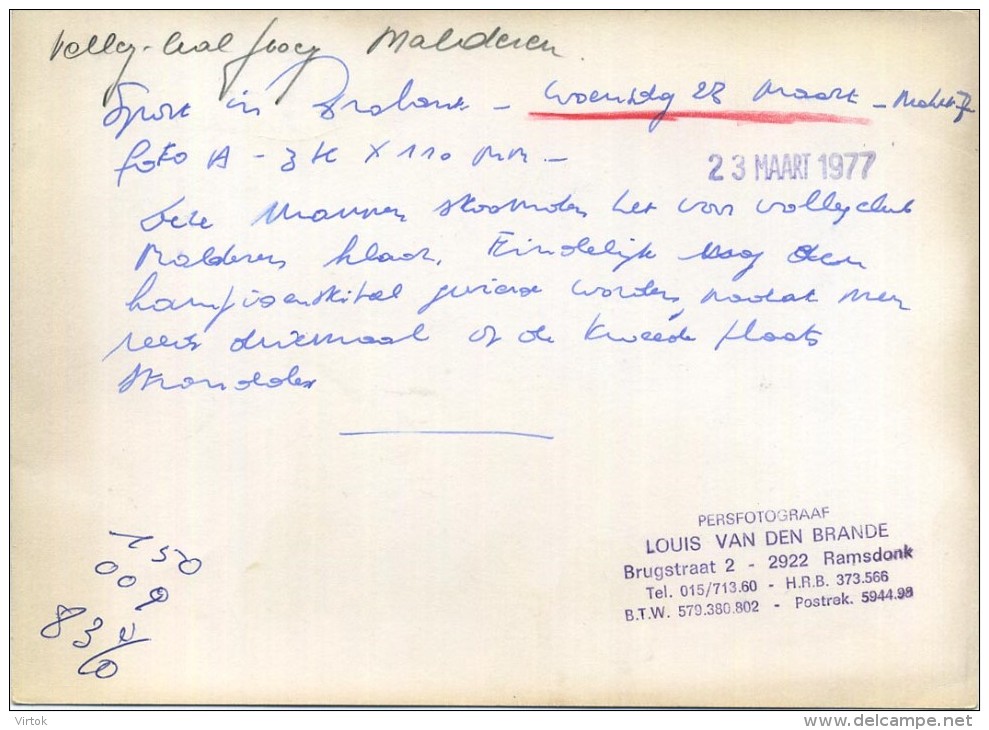 Volley-bal ploeg Malderen
Sport in Brabant - Woensdag 23 Maart -
foto A - 3 K X 110 mm -
23 MAART 1977
Deze mannen stoomden het voor volleyclub
Malderen klaar. Eindelijk mag den
kampioenstitel gevierd worden, nadat men
reeds driemaal op de tweede plaats
strandden
150
009
83
PERSFOTOGRAAF
LOUIS VAN DEN BRANDE
Brugstraat 2 - 2922 Ramsdonk
Tel. 015/713.60 - H.R.B. 373.566
B.T.W. 579.380.802 - Postrek. 5944.98
Virtok
www.delcampe.net